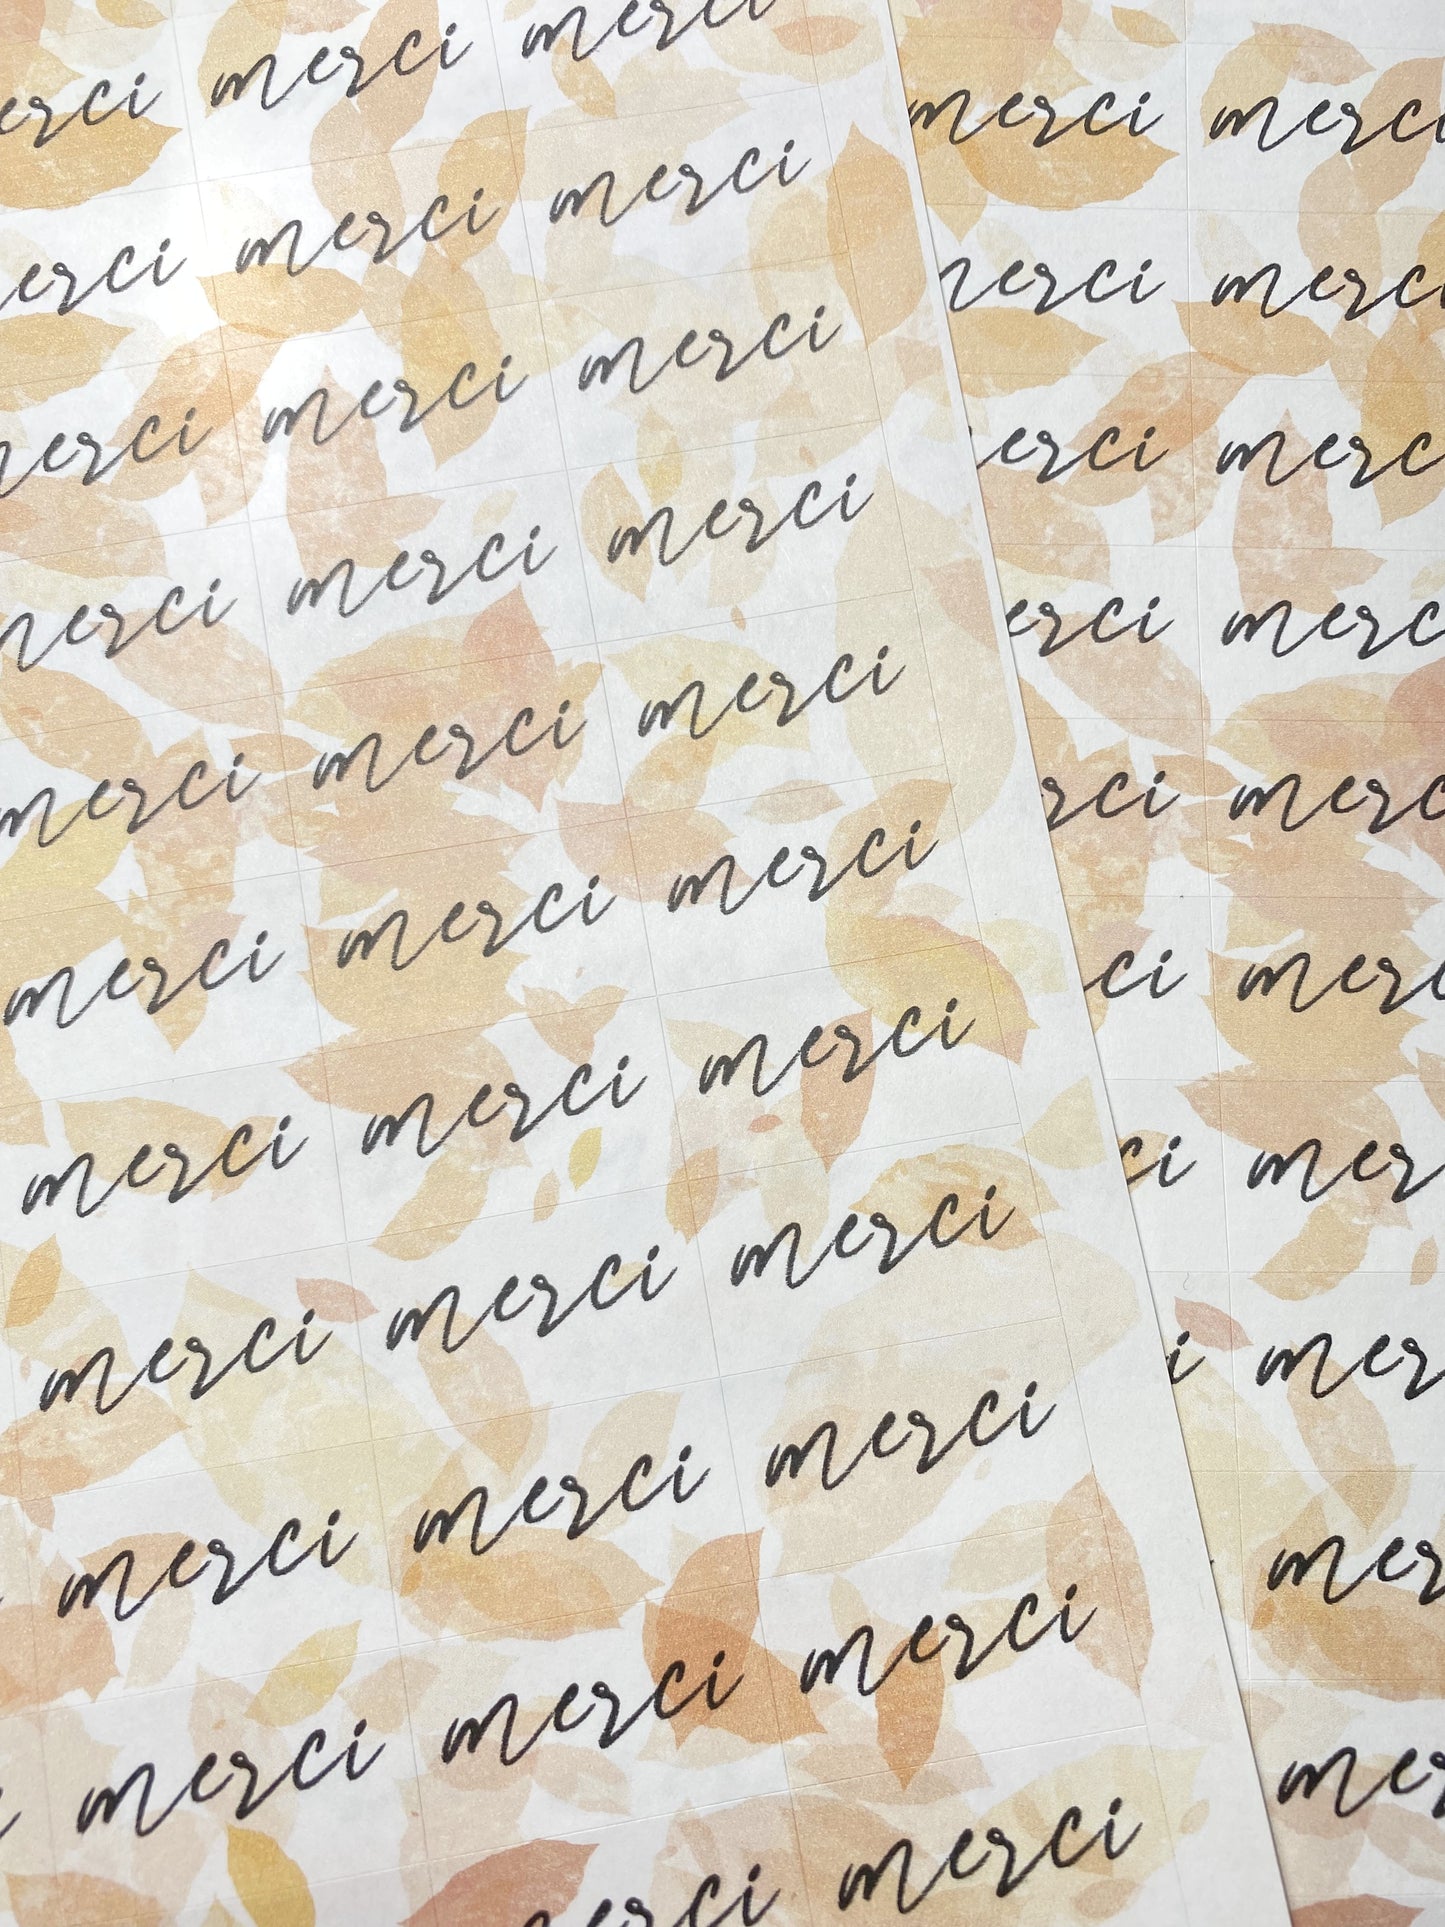 merci merci merci
merci merci merci
merci merci merci
merci merci merci
merci merci merci
merci merci merci
merci merci merci
merci merci merci
merci merci merci
merci merci merci
merci merci
merci merci
merci merci
merci merci
merci merci
merci merci
merci merci
merci
merci
merci
merci